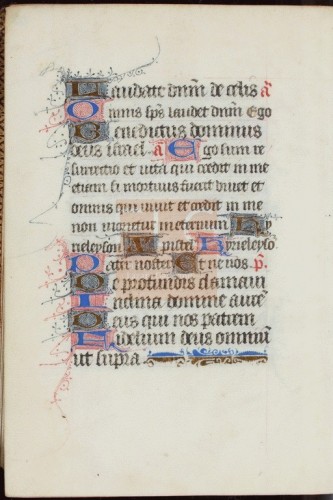 Laudate dnm de celis a
Omnis sps laudet dnm Ego
Benedictus dominus
deus israel a Ego sum re
surrectio et vita qui credit in me
etiam si mortuus fuerit vivet et
omnis qui vivit et credit in me
non morietur in eternum Ky
rieleyson Kyrieleyso
Pater noster Et ne nos p
De profundis clamavi
Inclina domine aure
Deus qui nos patrem
Fidelium deus omniu
ut supra